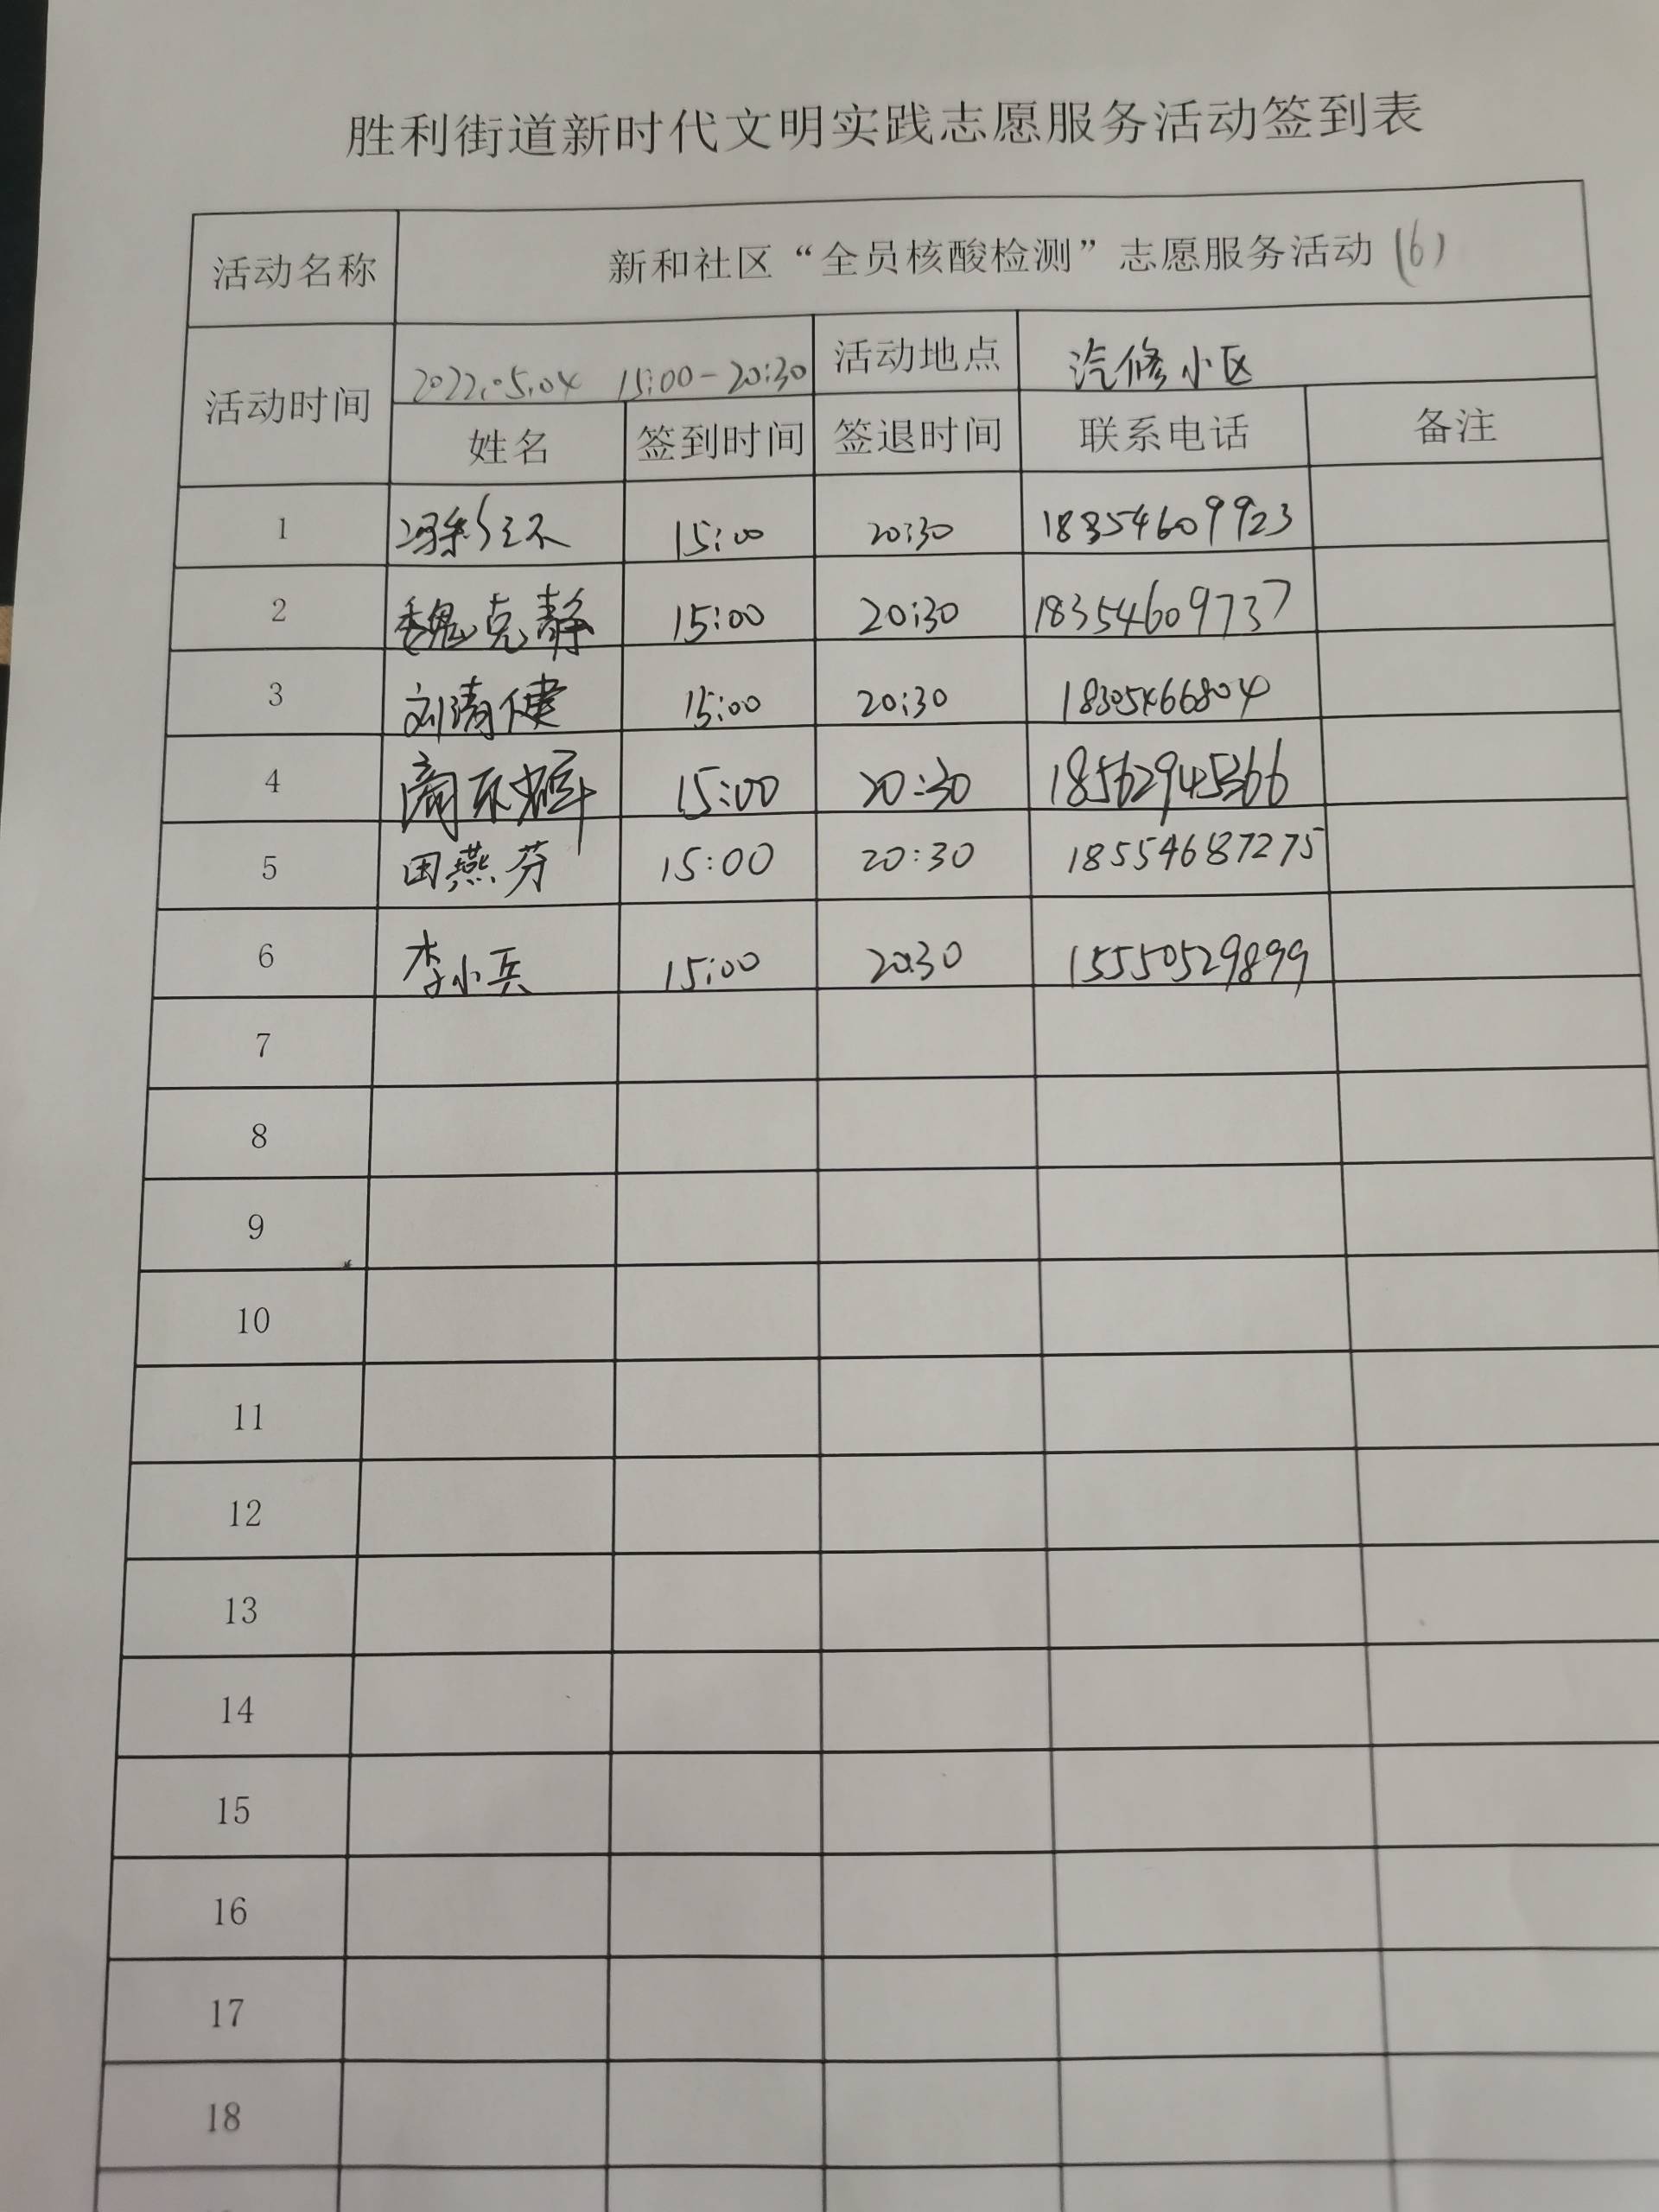 胜利街道新时代文明实践志愿服务活动签到表
活动名称 新和社区“全员核酸检测”志愿服务活动(6)
活动时间 2022.05.04 15:00-20:30 活动地点 汽修小区
姓名 签到时间 签退时间 联系电话 备注
1 15:00 20:30 18354609923
2 魏克静 15:00 20:30 18354609737
3 刘清健 15:00 20:30 18305466804
4 15:00 20:30
5 田燕芬 15:00 20:30 18554687275
6 李小兵 15:00 20:30 15550529899
7
8
9
10
11
12
13
14
15
16
17
18